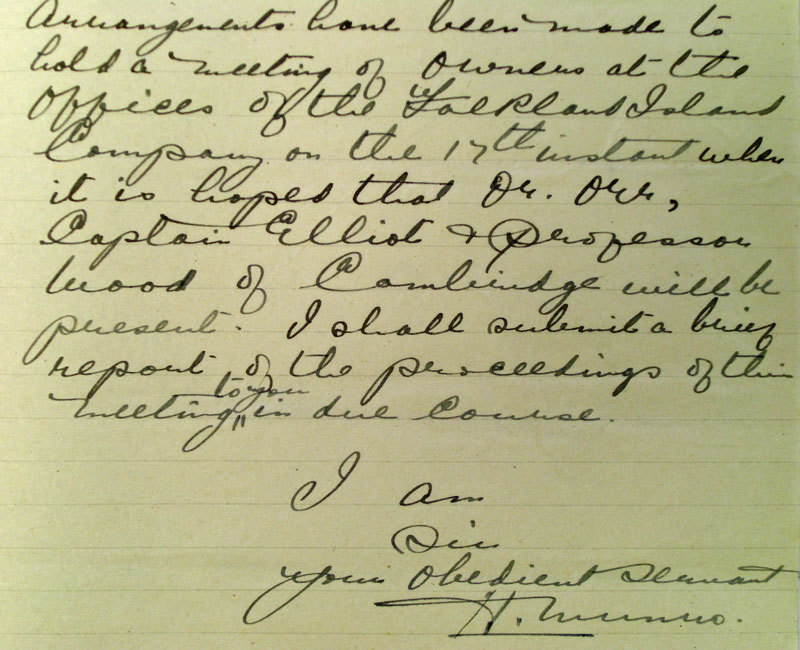 Arrangements have been made to
hold a meeting of owners at the
Offices of the "Falkland Island
Company on the 17th instant when
it is hoped that Dr. Orr,
Captain Elliot & Professor
Wood of Cambridge will be
present. I shall submit a brief
report of the proceedings of this
to you
meeting in due course.
I am
Sir
Your Obedient Servant
H. Munro.